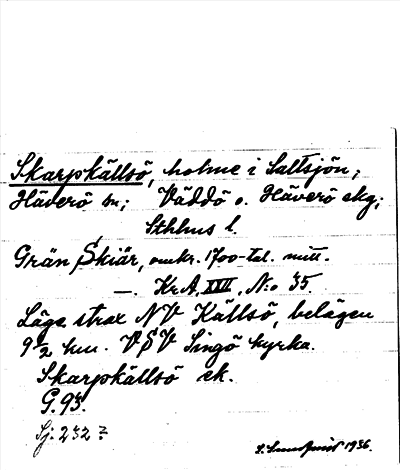 Skarpkällsö, holme i Saltsjön;
Häverö sn; Väddö o. Häverö skg;
Sthlms l.
Grän Skiär, omkr. 1700-tal. mitt.
—. Kr.A. XXIII, N:o 35.
Läge strax NV Källsö, belägen
9 1/2 km. VSV Singö kyrka.
Skarpkällsö ek.
G. 93.
Sj. 232?
S. Lundqvist 1936.